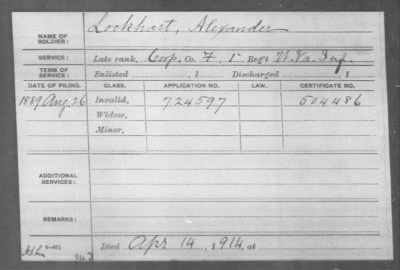 Lockhart, Alexander
NAME OF
SOLDIER:
SERVICE: Late rank, Corp. Co. F, 1" Reg't W. Va. Inf.
TERM OF
SERVICE: Enlisted , 1 Discharged , 1
DATE OF FILING. CLASS. APPLICATION NO. LAW. CERTIFICATE NO.
1889 Aug. 26 Invalid, 724597 504486
Widow,
Minor,
ADDITIONAL
SERVICES:
REMARKS:
Died Apr 14, 1914, at